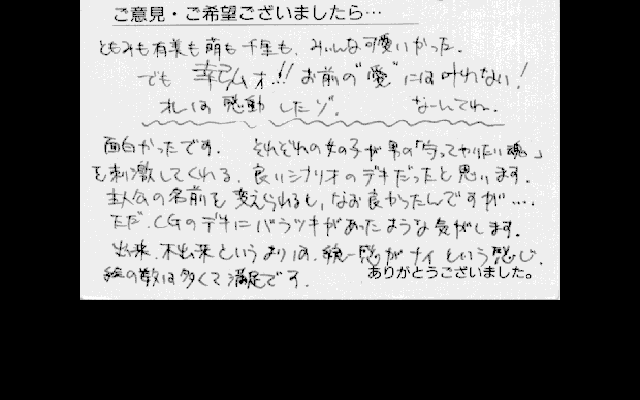 ご意見・ご希望ございましたら…
ともみも有美も萌も千里も、みぃんな可愛いかった.
でも 幸弘ムオ!! お前の"愛"には叶わない!
オレは 感動 したゾ. なーんてね.
面白かったです. それぞれの女の子が男の「守ってやりたい魂」
を刺激してくれる、良いシナリオのデキだったと思います.
主人公の名前を変えられると、なお良かったんですが….
ただ、CGのデキにバラツキがあったような気がします.
出来、不出来というよりは、統一感がナイという感じ.
絵の数は多くて満足です.
ありがとうございました。